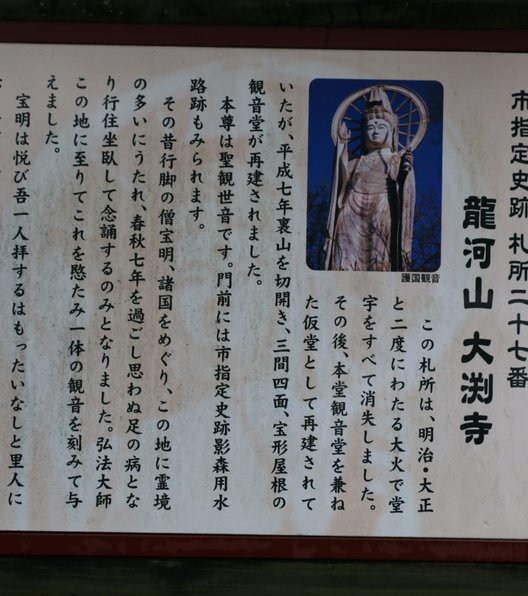 市指定史跡 札所二十七番
龍河山 大渕寺
護国観音
この札所は、明治・大正
と二度にわたる大火で堂
宇をすべて消失しました。
その後、本堂観音堂を兼ね
た仮堂として再建されて
いたが、平成七年裏山を切開き、三間四面、宝形屋根の
観音堂が再建されました。
本尊は聖観世音です。門前には市指定史跡影森用水
路跡もみられます。
その昔行脚の僧宝明、諸国をめぐり、この地に霊境
の多いにうたれ、春秋七年を過ごし思わぬ足の病とな
り行住坐臥して念誦するのみとなりました。弘法大師
この地に至りてこれを愍たみ一体の観音を刻みて与
えました。
宝明は悦び吾一人拝するはもったいなしと里人に